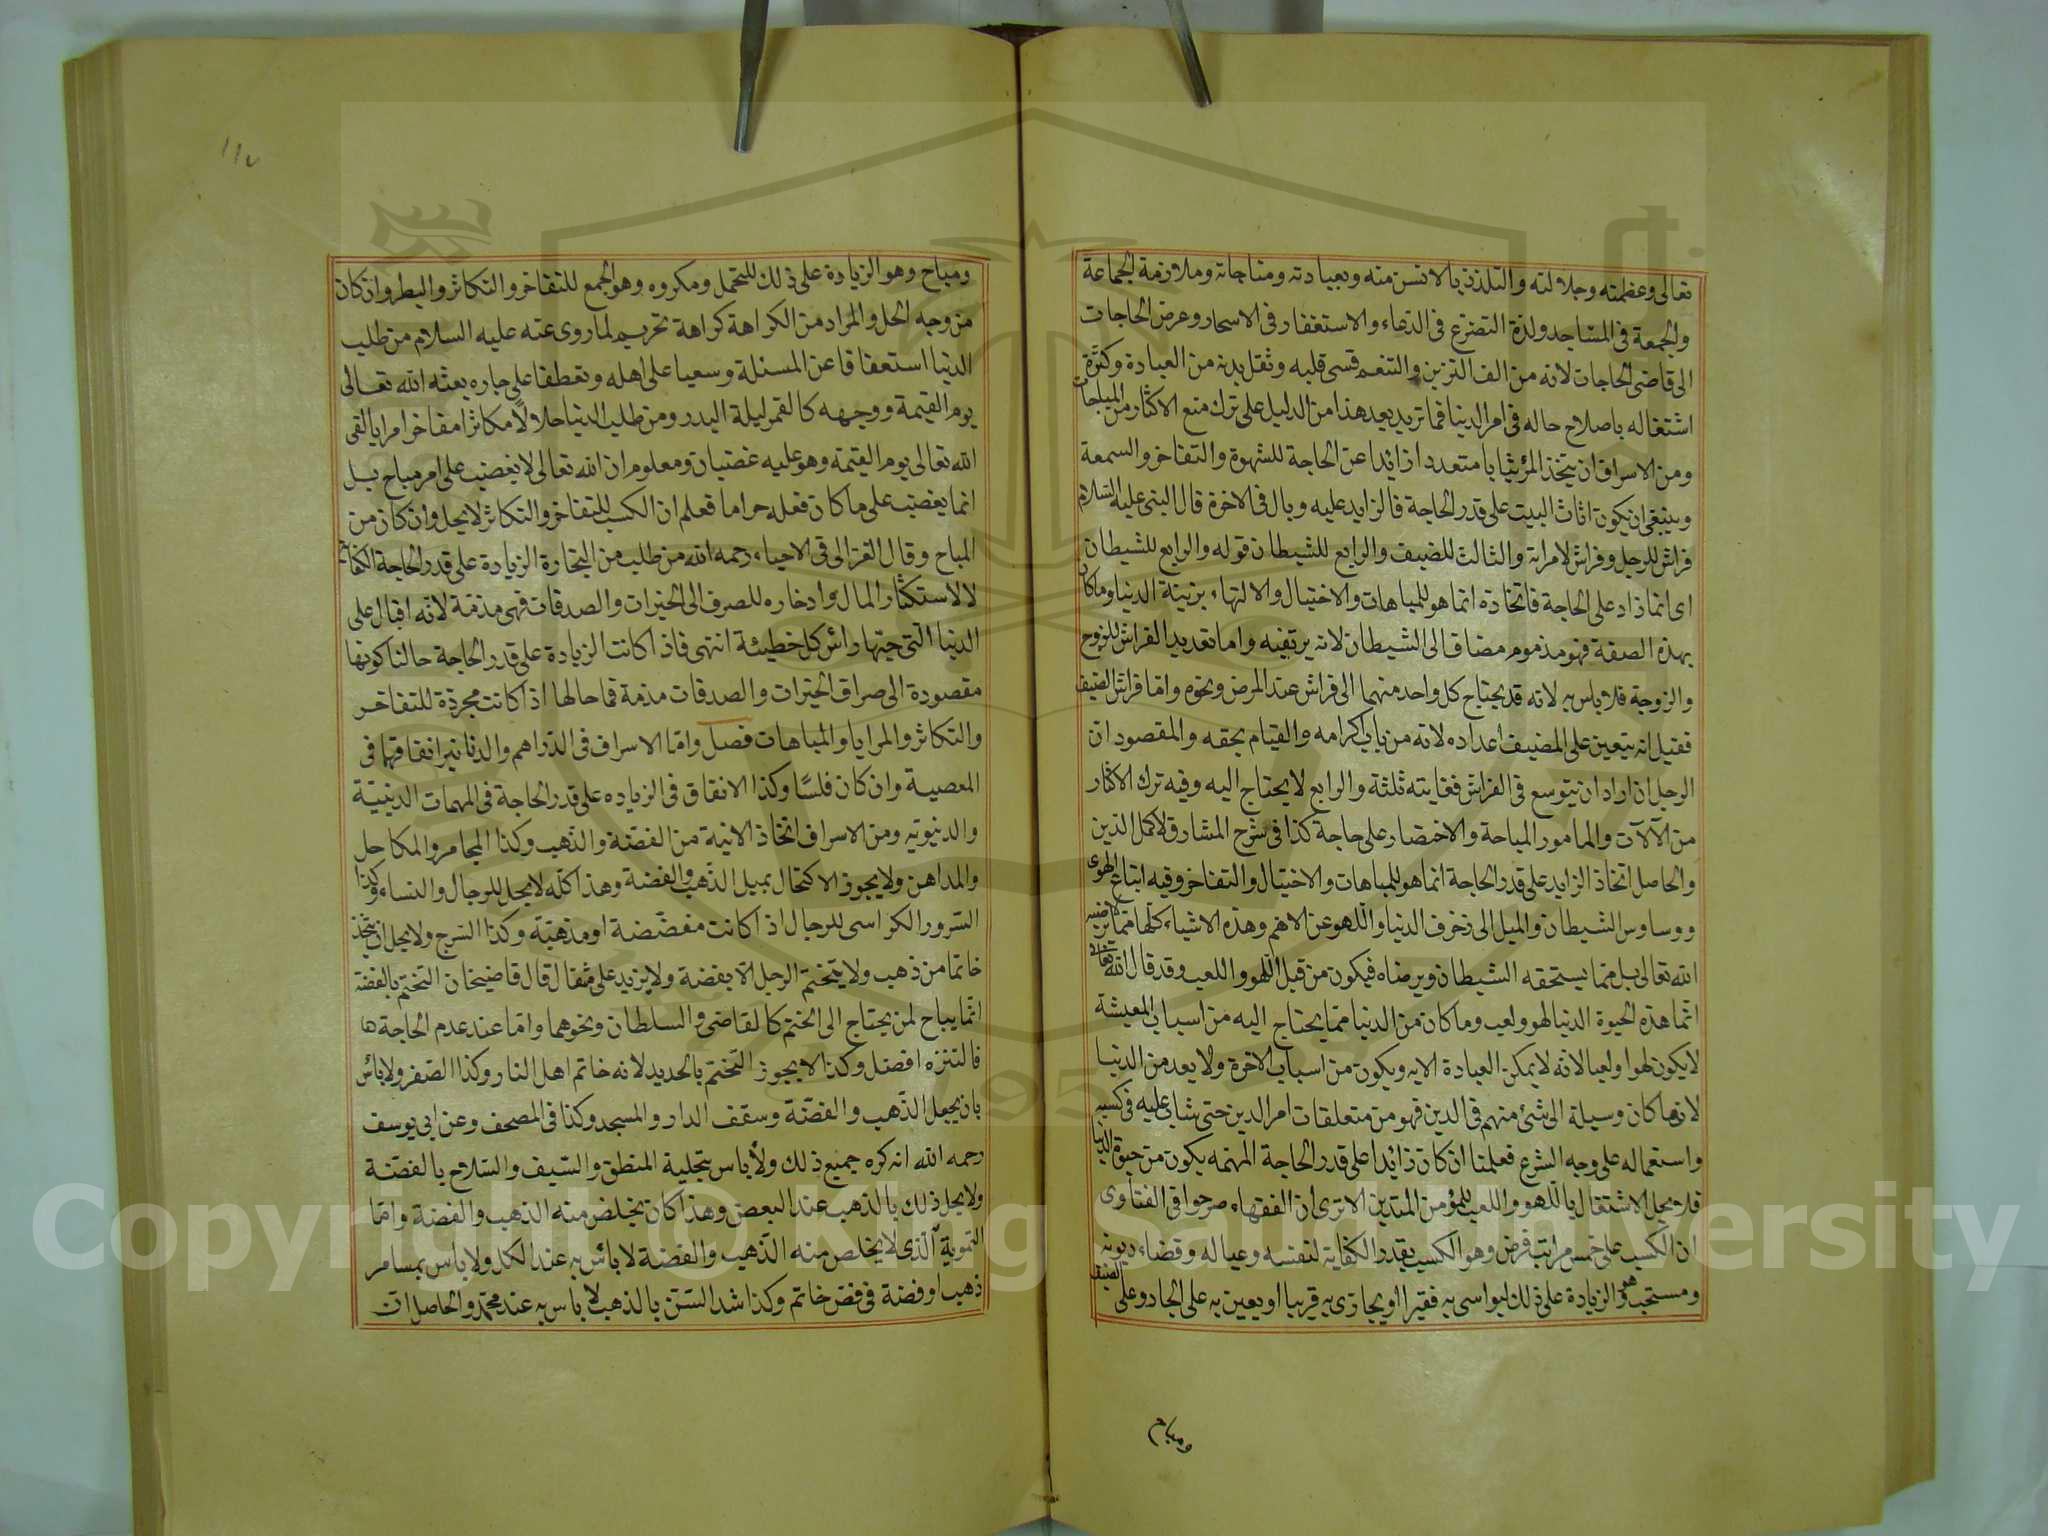 تعالى وعظمته وجلالته والتلذذ بالانس منه وبعبادته ومناجاته وملازمة الجماعة
والجمعة فى المساجد ولذة التضرع فى الدعاء والاستغفار فى الاسحار وعرض الحاجات
الى قاضى الحاجات لانه من الف التزين والتنعم قسى قلبه وثقل بدنه من العبادة وكثرة
اشتغاله باصلاح حاله فى امر الدنيا فما تريد بعد هذا من الدليل على ترك منع الاكثار من المباحات
ومن الاسراف ان يتخذ المرء ثيابا متعددا زائدا عن الحاجة للشهوة والتفاخر والسمعة
وينبغى ان يكون اثاث البيت على قدر الحاجة فالزايد عليه وبال فى الاخرة قال النبى عليه السلام
فراش للرجل وفراش لامراته والثالث للضيف والرابع للشيطان قوله والرابع للشيطان
اى انما زاد على الحاجة فاتخاذه انما هو للمباهات والاختيال والالتهاء بزينة الدنيا وما كان
بهذه الصفة فهو مذموم مضاف الى الشيطان لانه يرتضيه واما تعديد الفراش للزوج
والزوجة فلا باس به لانه قد يحتاج كل واحد منهما الى فراش عند المرض ونحوه واما فراش الضيف
فقيل انه يتعين على المضيف اعداده لانه من باب اكرامه والقيام بحقه والمقصود ان
الرجل ان اراد ان يتوسع فى الفراش فغايته ثلثة والرابع لا يحتاج اليه وفيه ترك الاكثار
من الآلات والمامور المباحة والاختصار على حاجة كذا فى شرح المشارق لاكمل الدين
والحاصل اتخاذ الزايد على قدر الحاجة انما هو للمباهات والاختيال والتفاخر وفيه اتباع الهوى
ووساوس الشيطان والميل الى زخرف الدنيا واللهو عن الاهم وهذه الاشياء كلها مما لا يرضيه
الله تعالى بل مما يستحقه الشيطان ويرضاه فيكون من قبل اللهو واللعب وقد قال الله تعالى
انما هذه الحيوة الدنيا لهو ولعب وما كان من الدنيا مما يحتاج اليه من اسباب المعيشة
لا يكون لهوا ولعبا لانه لا يمكن العبادة الا به ويكون من اسباب الاخرة ولا يعد من الدنيا
لانها كان وسيلة الى شئ منهم فى الدين فهو من متعلقات امر الدين حتى يثاب عليه فى كسبه
واستعماله على وجه الشرع فعلمنا ان كان زائدا على قدر الحاجة المهمه يكون من حيوة الدنيا
فلا يحل الاشتغال باللهو واللعب للمؤمن المتدين الا ترى ان الفقهاء صرحوا فى الفتاوى
ان الكسب على خمس مراتب فرض وهو الكسب بقدر الكفاية لنفسه وعياله وقضاء ديونه
ومستحب وهو الزيادة على ذلك ليواسى به فقيرا او يجازى به قريبا او يعين به على الجار وعلى الضيف
ومباح
١١٧
ومباح وهو الزيادة على ذلك للتجمل ومكروه وهو الجمع للتفاخر والتكاثر والبطر وان كان
من وجه الحل والمراد من الكراهة كراهة تحريم لما روى عنه عليه السلام من طلب
الدنيا استعفافا عن المسئلة وسعيا على اهله وتعطفا على جاره بعثه الله تعالى
يوم القيمة ووجهه كالقمر ليلة البدر ومن طلب الدنيا حلالا مكاثرا مفاخرا مرايا لقى
الله تعالى يوم القيمة وهو عليه غضبان ومعلوم ان الله تعالى لا يغضب على امر مباح بل
انما يغضب على ما كان فعله حراما فعلم ان الكسب للتفاخر والتكاثر لا يحل وان كان من
المباح وقال الغزالى فى الاحياء رحمه الله من طلب من التجارة الزيادة على قدر الحاجة الكفاية
لا لاستكثار المال وادخاره للصرف الى الخيرات والصدقات فهى مذمة لانه اقبال على
الدنيا التى حبها رائس كل خطيئة انتهى فاذا كانت الزيادة على قدر الحاجة حالنا كونها
مقصودة الى صراف الخيرات والصدقات مذمة فما حالها اذا كانت مجردة للتفاخر
والتكاثر والمرايا والمباهات فصل واما الاسراف فى الدراهم والدنانير انفاقهما فى
المعصية وان كان فلسا وكذا الانفاق فى الزياده على قدر الحاجة فى المهمات الدينية
والدنيويه ومن الاسراف اتخاذ الانية من الفضة والذهب وكذا المجامر والمكاحل
والمداهن ولا يجوز الاكتحال بميل الذهب والفضة وهذا كله لا يحل للرجال والنساء وكذا
السرور الكراسى للرجال اذا كانت مفضضة او مذهبة وكذا السرج ولا يحل ان يتخذ
خاتما من ذهب ولا يتختم الرجل الا بفضة ولا يزيد على مثقال قال قاضيخان التختم بالفضة
انما يباح لمن يحتاج الى الختم كالقاضى والسلطان ونحوهما واما عند عدم الحاجة ها
فالتنزه افضل وكذا لا يجوز التختم بالحديد لانه خاتم اهل النار وكذا الصفر ولا بائس
بان يجعل الذهب والفضة وسقف الدار والمسجد وكذا فى المصحف وعن ابى يوسف
رحمه الله انه كره جميع ذلك ولا باس بتحلية المنطق والسيف والسلاح بالفضة
ولا يحل ذلك بالذهب عند البعض وهذا كان يخلص منه الذهب والفضة واما
التموية الذى لا يخلص منه الذهب والفضة لا بائس به عند الكل ولا باس بمسامر
ذهب او فضة فى فص خاتم وكذا شد السن بالذهب لا باس به عند محمد والحاصل ان
Copyright © King Saud University